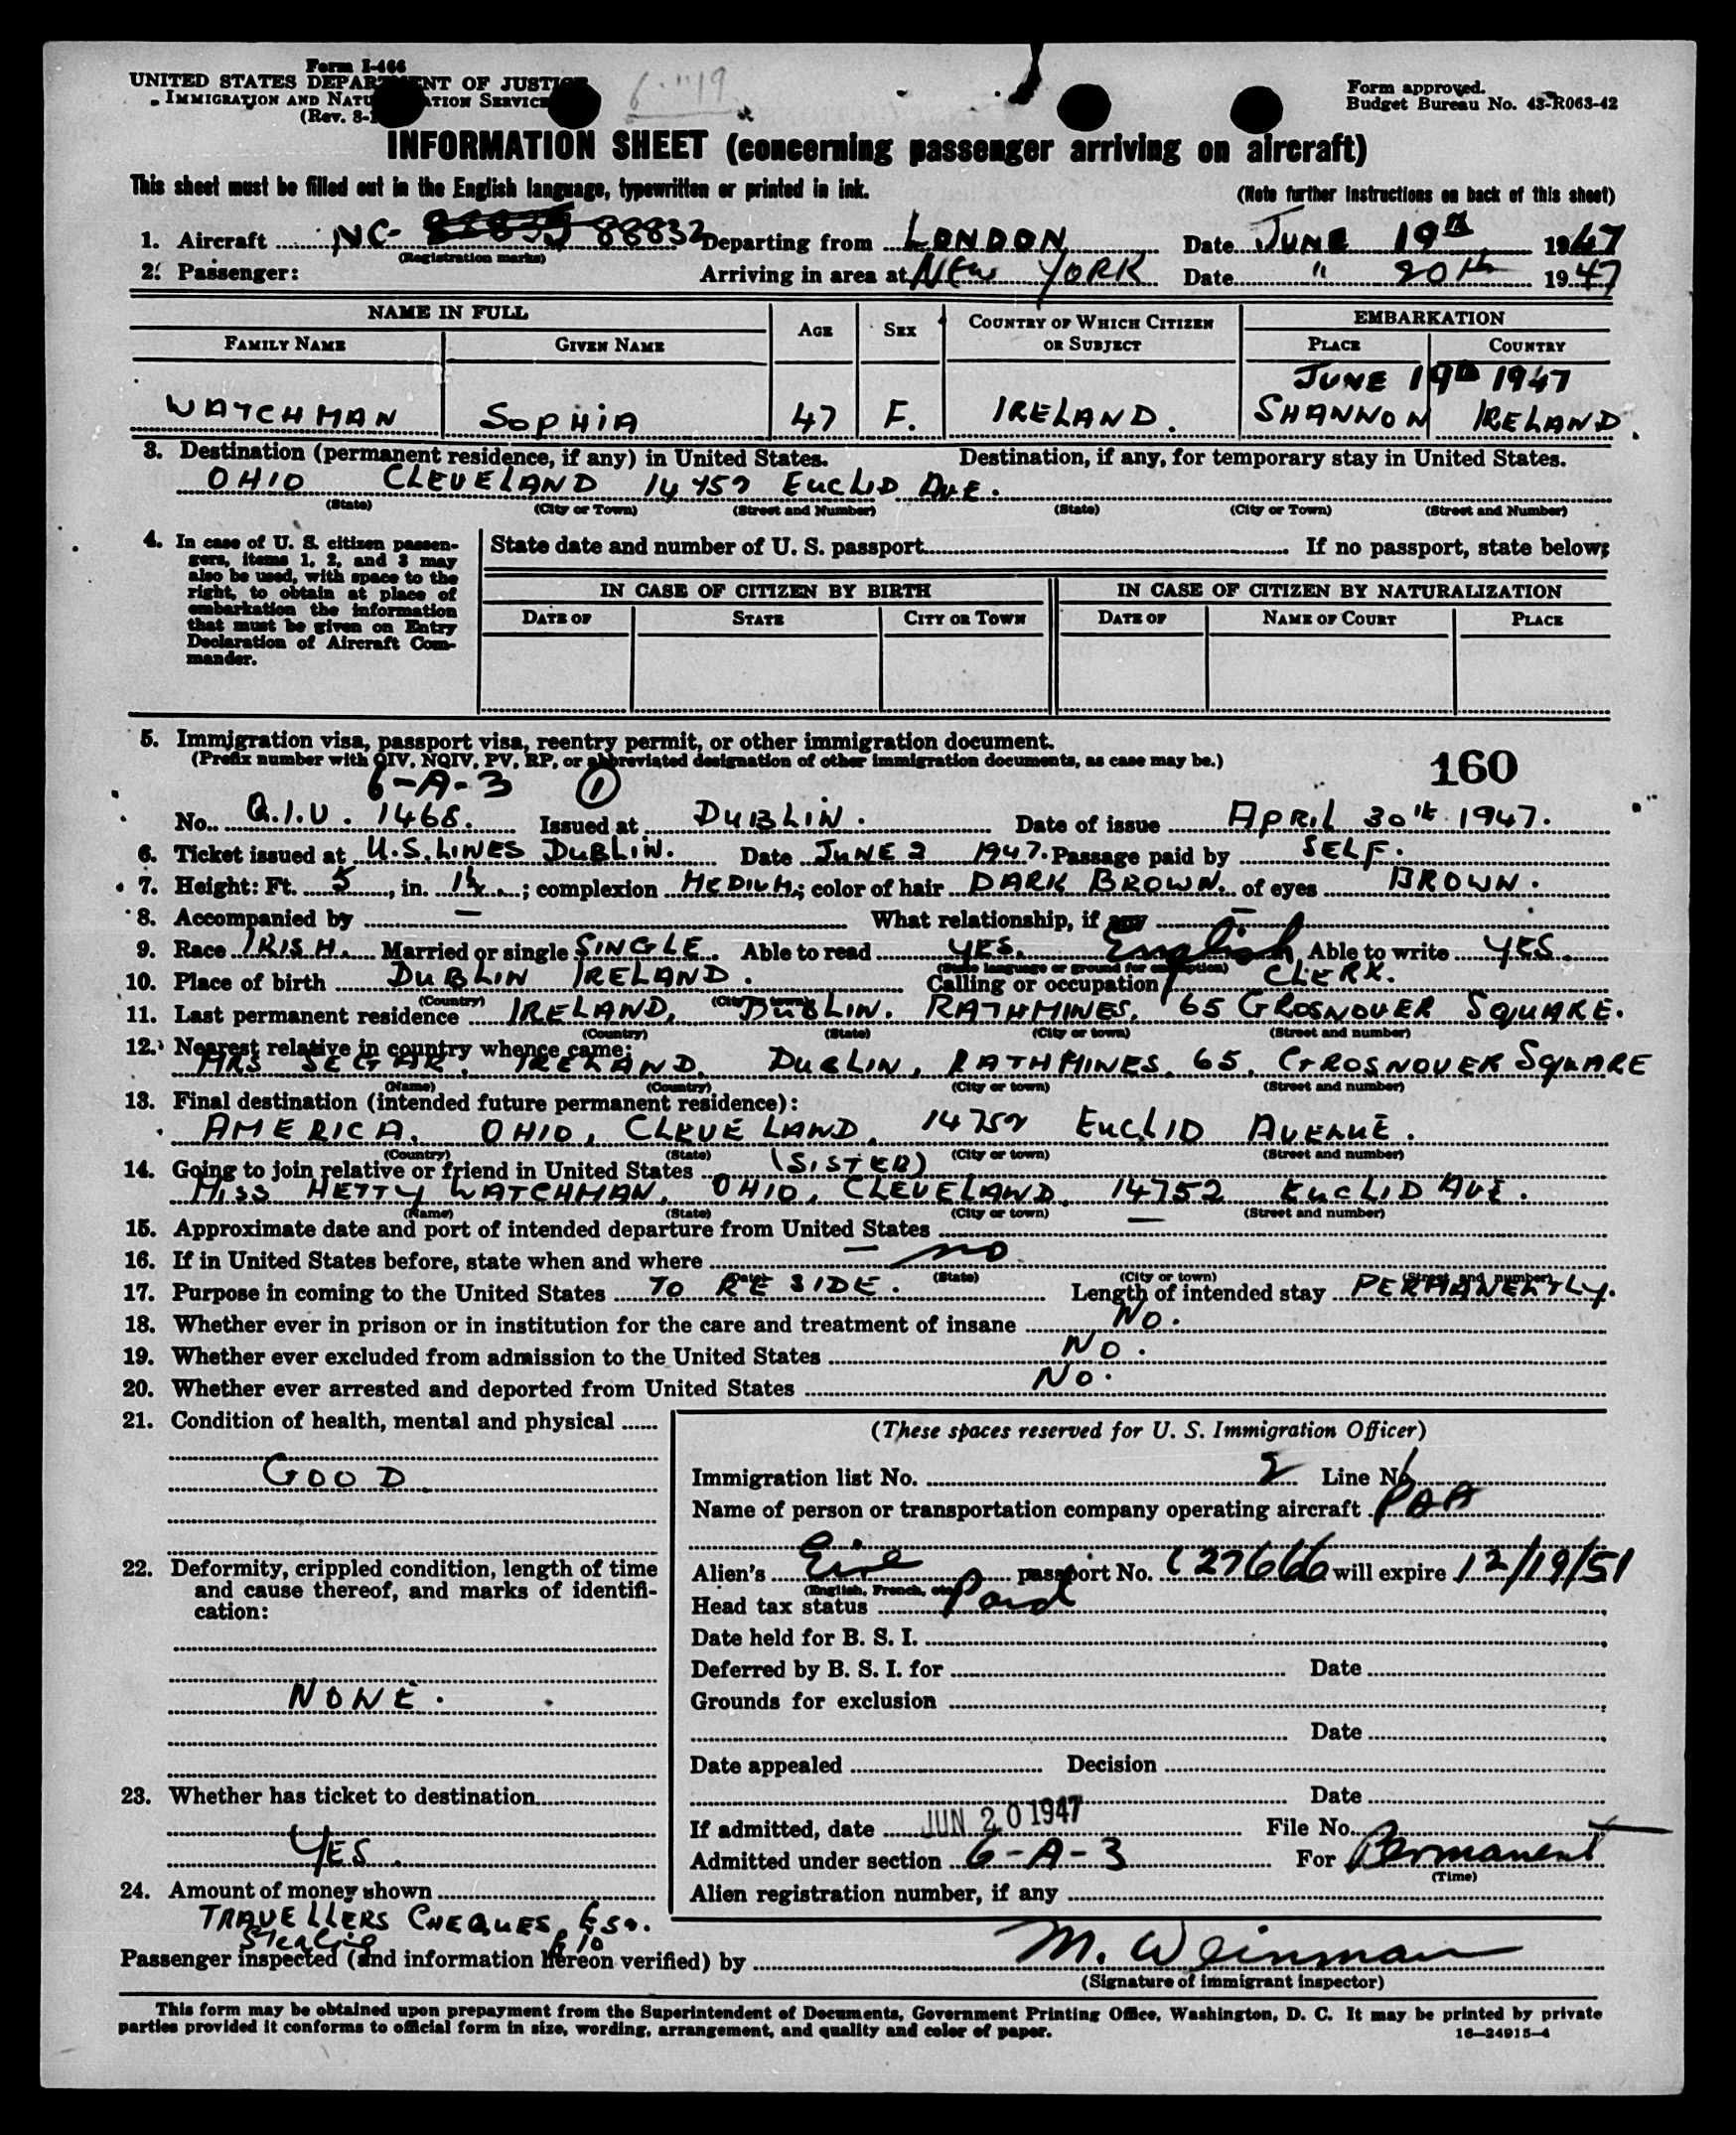 Form I-466
UNITED STATES DEPARTMENT OF JUSTICE
IMMIGRATION AND NATURALIZATION SERVICE
(Rev. 8-
6-"19
Form approved.
Budget Bureau No. 43-R063-42
INFORMATION SHEET (concerning passenger arriving on aircraft)
This sheet must be filled out in the English language, typewritten or printed in ink.
(Note further instructions on back of this sheet)
1. Aircraft NC- 88832 Departing from LONDON Date JUNE 19th 1947
(Registration marks)
2. Passenger: Arriving in area at NEW YORK Date " 20th 1947
NAME IN FULL AGE SEX COUNTRY OF WHICH CITIZEN OR SUBJECT EMBARKATION
FAMILY NAME GIVEN NAME PLACE COUNTRY
JUNE 19th 1947
WATCHMAN SOPHIA 47 F. IRELAND. SHANNON IRELAND.
3. Destination (permanent residence, if any) in United States. Destination, if any, for temporary stay in United States.
OHIO CLEVELAND 14752 EUCLID AVE.
(State) (City or Town) (Street and Number) (State) (City or Town) (Street and Number)
4. In case of U. S. citizen passengers, items 1, 2, and 3 may also be used, with space to the right, to obtain at place of embarkation the information that must be given on Entry Declaration of Aircraft Commander.
State date and number of U. S. passport If no passport, state below:
IN CASE OF CITIZEN BY BIRTH IN CASE OF CITIZEN BY NATURALIZATION
DATE OF STATE CITY OR TOWN DATE OF NAME OF COURT PLACE
5. Immigration visa, passport visa, reentry permit, or other immigration document.
(Prefix number with QIV, NQIV, PV, RP, or abbreviated designation of other immigration documents, as case may be.)
160
6-A-3 1
No. Q.I.V. 1468. Issued at DUBLIN. Date of issue APRIL 30th 1947.
6. Ticket issued at U.S. LINES DUBLIN. Date JUNE 2 1947. Passage paid by SELF.
7. Height: Ft. 5, in. 1½; complexion MEDIUM; color of hair DARK BROWN. of eyes BROWN.
8. Accompanied by – What relationship, if any –
9. Race IRISH. Married or single SINGLE. Able to read YES. English Able to write YES.
(State language or ground for exemption)
10. Place of birth DUBLIN IRELAND. Calling or occupation CLERK.
(Country) (City or town)
11. Last permanent residence IRELAND, DUBLIN. RATHMINES, 65 GROSNOVER SQUARE.
(Country) (State) (City or town) (Street and number)
12. Nearest relative in country whence came:
MRS SEGAR. IRELAND. DUBLIN, RATHMINES. 65, GROSNOVER SQUARE
(Name) (Country) (City or town) (Street and number)
13. Final destination (intended future permanent residence):
AMERICA. OHIO, CLEVELAND, 14752 EUCLID AVENUE.
(Country) (State) (City or town) (Street and number)
14. Going to join relative or friend in United States (SISTER)
MISS HETTY WATCHMAN, OHIO, CLEVELAND, 14752 EUCLID AVE.
(Name) (State) (City or town) (Street and number)
15. Approximate date and port of intended departure from United States –
16. If in United States before, state when and where – no
(Date) (State) (City or town) (Street and number)
17. Purpose in coming to the United States TO RESIDE. Length of intended stay PERMANENTLY.
18. Whether ever in prison or in institution for the care and treatment of insane NO.
19. Whether ever excluded from admission to the United States NO.
20. Whether ever arrested and deported from United States NO.
21. Condition of health, mental and physical
GOOD
22. Deformity, crippled condition, length of time and cause thereof, and marks of identification:
NONE.
23. Whether has ticket to destination
YES.
24. Amount of money shown
TRAVELLERS CHEQUES £50.
Sterling £10
(These spaces reserved for U. S. Immigration Officer)
Immigration list No. 2 Line No. 1
Name of person or transportation company operating aircraft PAA
Alien's Eire passport No. C 27666 will expire 12/19/51
(English, French, etc.)
Head tax status Paid
Date held for B. S. I.
Deferred by B. S. I. for Date
Grounds for exclusion
Date
Date appealed Decision
Date
If admitted, date JUN 20 1947 File No.
Admitted under section 6-A-3 For Permanent
(Time)
Alien registration number, if any
Passenger inspected (and information hereon verified) by M. Weinman
(Signature of immigrant inspector)
This form may be obtained upon prepayment from the Superintendent of Documents, Government Printing Office, Washington, D. C. It may be printed by private
parties provided it conforms to official form in size, wording, arrangement, and quality and color of paper.
16—24915-4